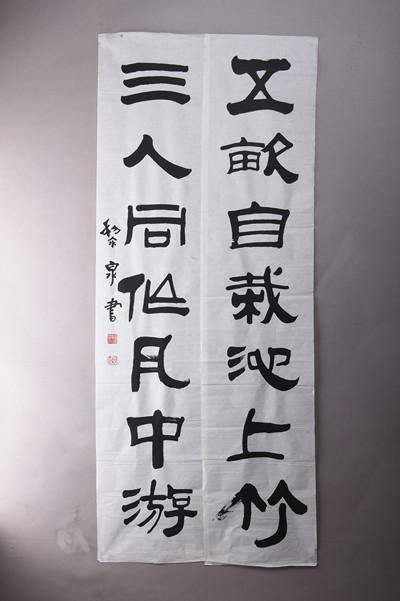 五畝自栽池上竹
三人同作月中游
黎泉書